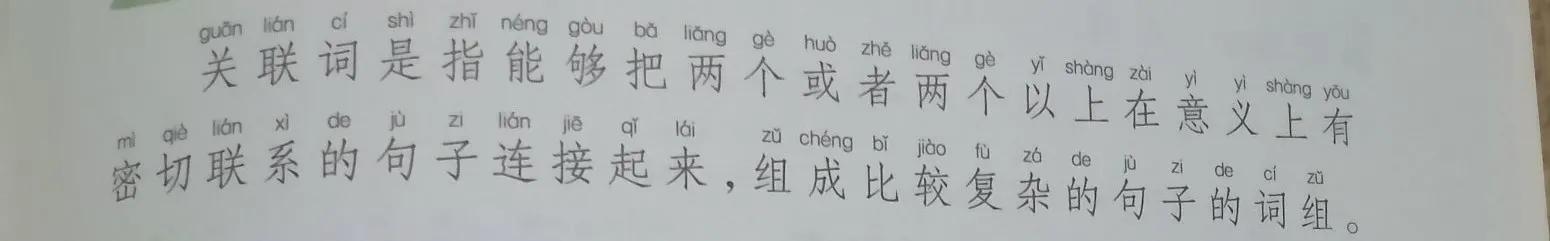 guān lián cí shì zhǐ néng gòu bǎ liǎng gè huò zhě liǎng gè yǐ shàng zài yì yì shàng yǒu
关联词是指能够把两个或者两个以上在意义上有
mì qiè lián xì de jù zi lián jiē qǐ lái zǔ chéng bǐ jiào fù zá de jù zi de cí zǔ
密切联系的句子连接起来，组成比较复杂的句子的词组。